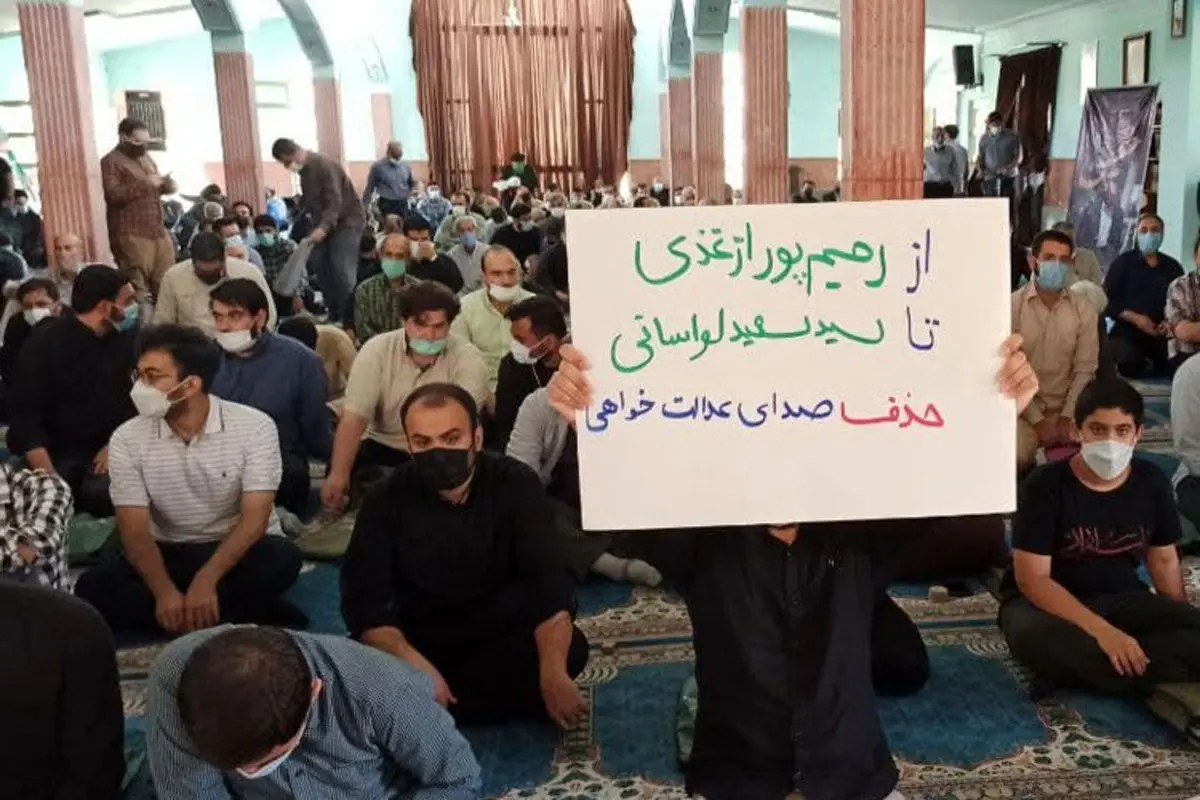 از رحیم پور ازغذی
تا سید سعید لواسانی
حذف صدای عدالت خواهی